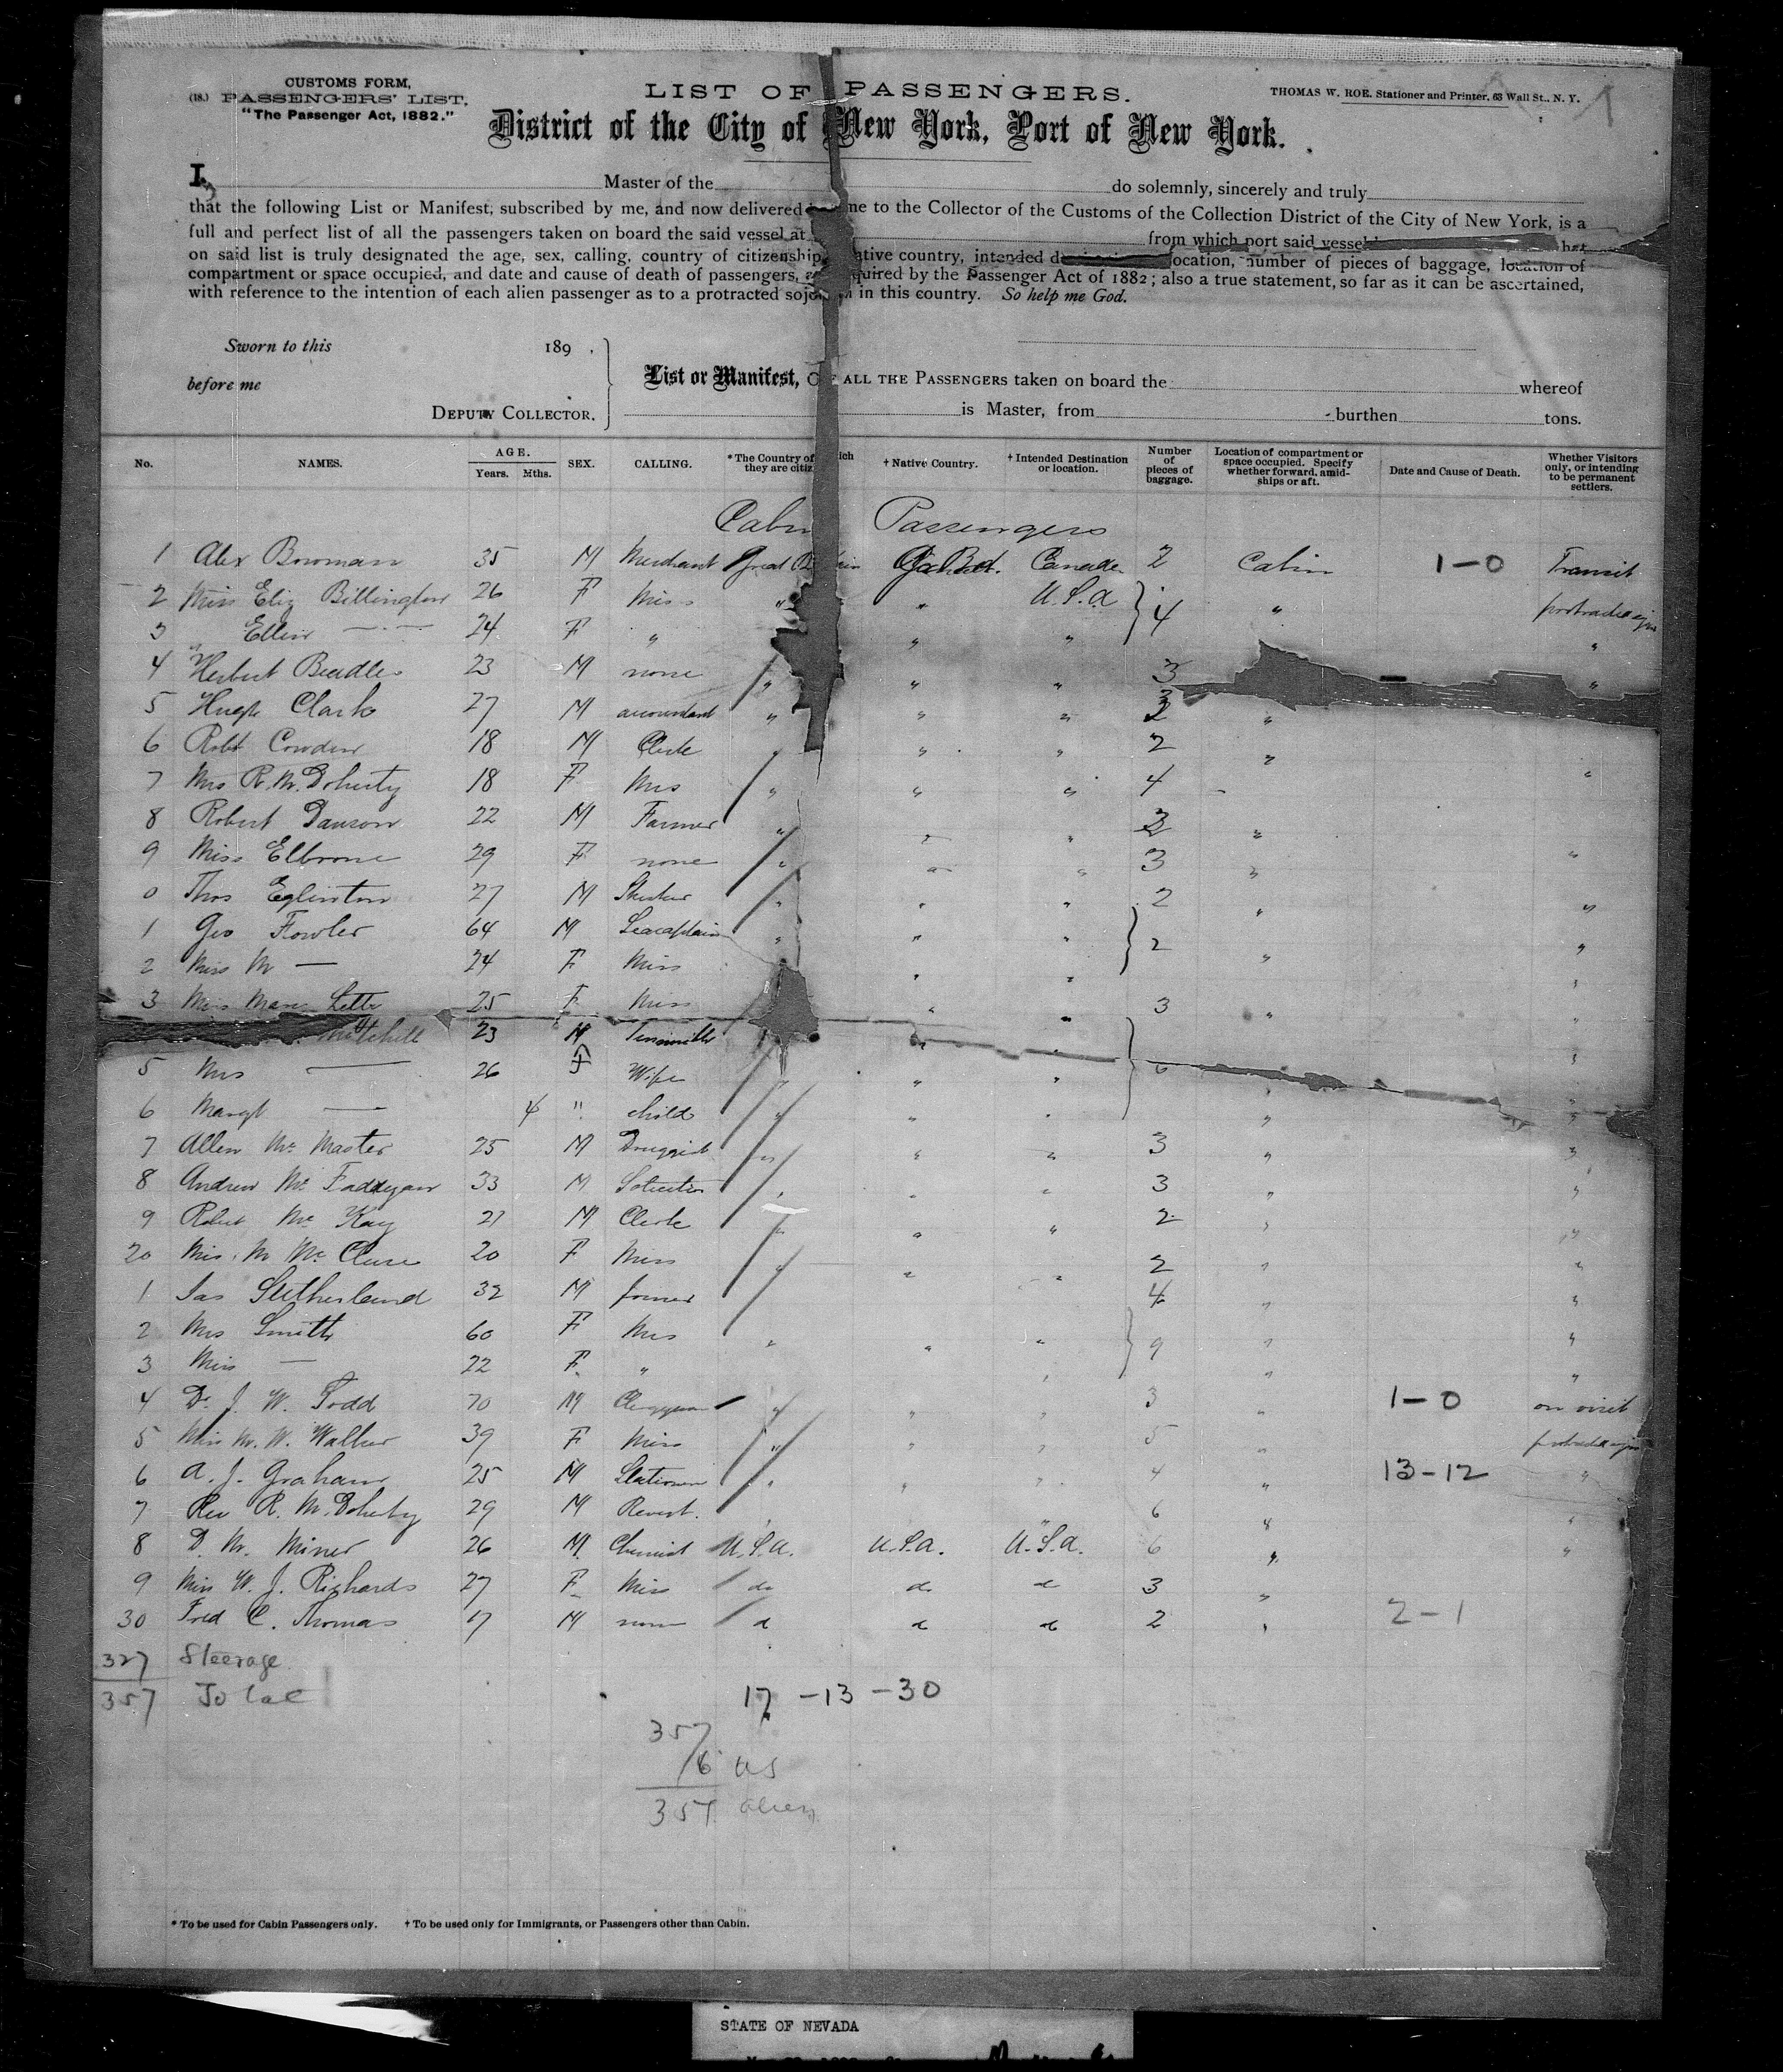 CUSTOMS FORM,
(18.) PASSENGERS' LIST.
"The Passenger Act, 1882."
LIST OF PASSENGERS.
THOMAS W. ROE, Stationer and Printer, 63 Wall St., N. Y.
1
District of the City of New York, Port of New York.
I, Master of the do solemnly, sincerely and truly
that the following List or Manifest, subscribed by me, and now delivered me to the Collector of the Customs of the Collection District of the City of New York, is a
full and perfect list of all the passengers taken on board the said vessel at from which port said vessel
on said list is truly designated the age, sex, calling, country of citizenship, ative country, intended location, number of pieces of baggage, location of
compartment or space occupied, and date and cause of death of passengers, quired by the Passenger Act of 1882; also a true statement, so far as it can be ascertained,
with reference to the intention of each alien passenger as to a protracted sojo n in this country. So help me God.
Sworn to this 189 .
before me
DEPUTY COLLECTOR.
List or Manifest, OF ALL THE PASSENGERS taken on board the whereof
is Master, from burthen tons.
No. NAMES. AGE. Years. Mths. SEX. CALLING. * The Country of ich they are citiz † Native Country. † Intended Destination or location. Number of pieces of baggage. Location of compartment or space occupied. Specify whether forward, amidships or aft. Date and Cause of Death. Whether Visitors only, or intending to be permanent settlers.
Cabin Passengers
1 Alex Bowman 35 M Merchant Great Britain Gt. Brit. Canada 2 Cabin 1-0 Transit
2 Miss Eliz Billington 26 F Miss " " U.S.a } 4 "
3 Ellen — 24 F " " "
4 Herbert Beadle 23 M none " " " 3 "
5 Hugh Clark 27 M accountant " " " 2 "
6 Robt Cowden 18 M Clerk " " " 2 "
7 Mrs R. M. Doherty 18 F Mrs " " " 4 "
8 Robert Dawson 22 M Farmer " " " 3 "
9 Miss Elbrone 29 F none " " " 3 " "
0 Thos Eglinton 27 M " " " 2 " "
1 Geo Fowler 64 M Seacaptain " " " } 2 " "
2 Miss M — 24 F Miss " " "
3 Miss 25 F Miss " " 3 " "
Mitchell 23 M Tinsmith " " "
5 Mrs — 26 F Wife " " " 6
6 Margt — 4 " child " " " " "
7 Allen Mc Master 25 M Druggist " " " 3 " "
8 Andrew Mc Faddzean 33 M Solicitor " " " 3 " "
9 Robert Mc Kay 21 M Clerk " " " 2 " "
20 Miss M Mc Clure 20 F Miss " " " 2 " "
1 Jas Sutherland 32 M 4 " "
2 Mrs Smith 60 F Mrs " " " } 9 " "
3 Miss — 22 F " " " "
4 Dr. J. W. Todd 70 M Clergyman " " " 3 " 1-0 on visit
5 Miss M. W. Walker 39 F Miss " " " 5 "
6 A. J. Graham 25 M " " " 4 " 13-12 "
7 Rev R. M. Doherty 29 M Revert. " 6 " "
8 D. M. Miner 26 M. Chemist U.S.a. U.S.a. U.S.a. 6 " "
9 Miss W. J. Richards 27 F Miss do do do 3 "
30 Fred C. Thomas 17 M none do do do 2 " 2-1
327 Steerage
357 Total
17 - 13 - 30
357
6 US
351 alien
* To be used for Cabin Passengers only. † To be used only for Immigrants, or Passengers other than Cabin.
STATE OF NEVADA